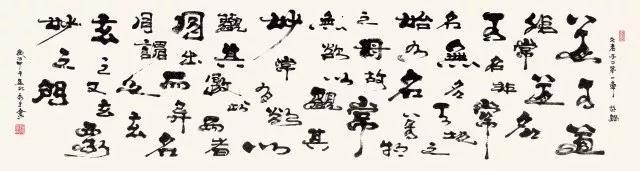 道可道
非常道名
可名非常
名無名天地之
始有名萬物
之母故常
無欲以觀其
妙常有欲以
觀其徼此兩者
同出而異名
同謂之玄
玄之又玄衆
妙之門